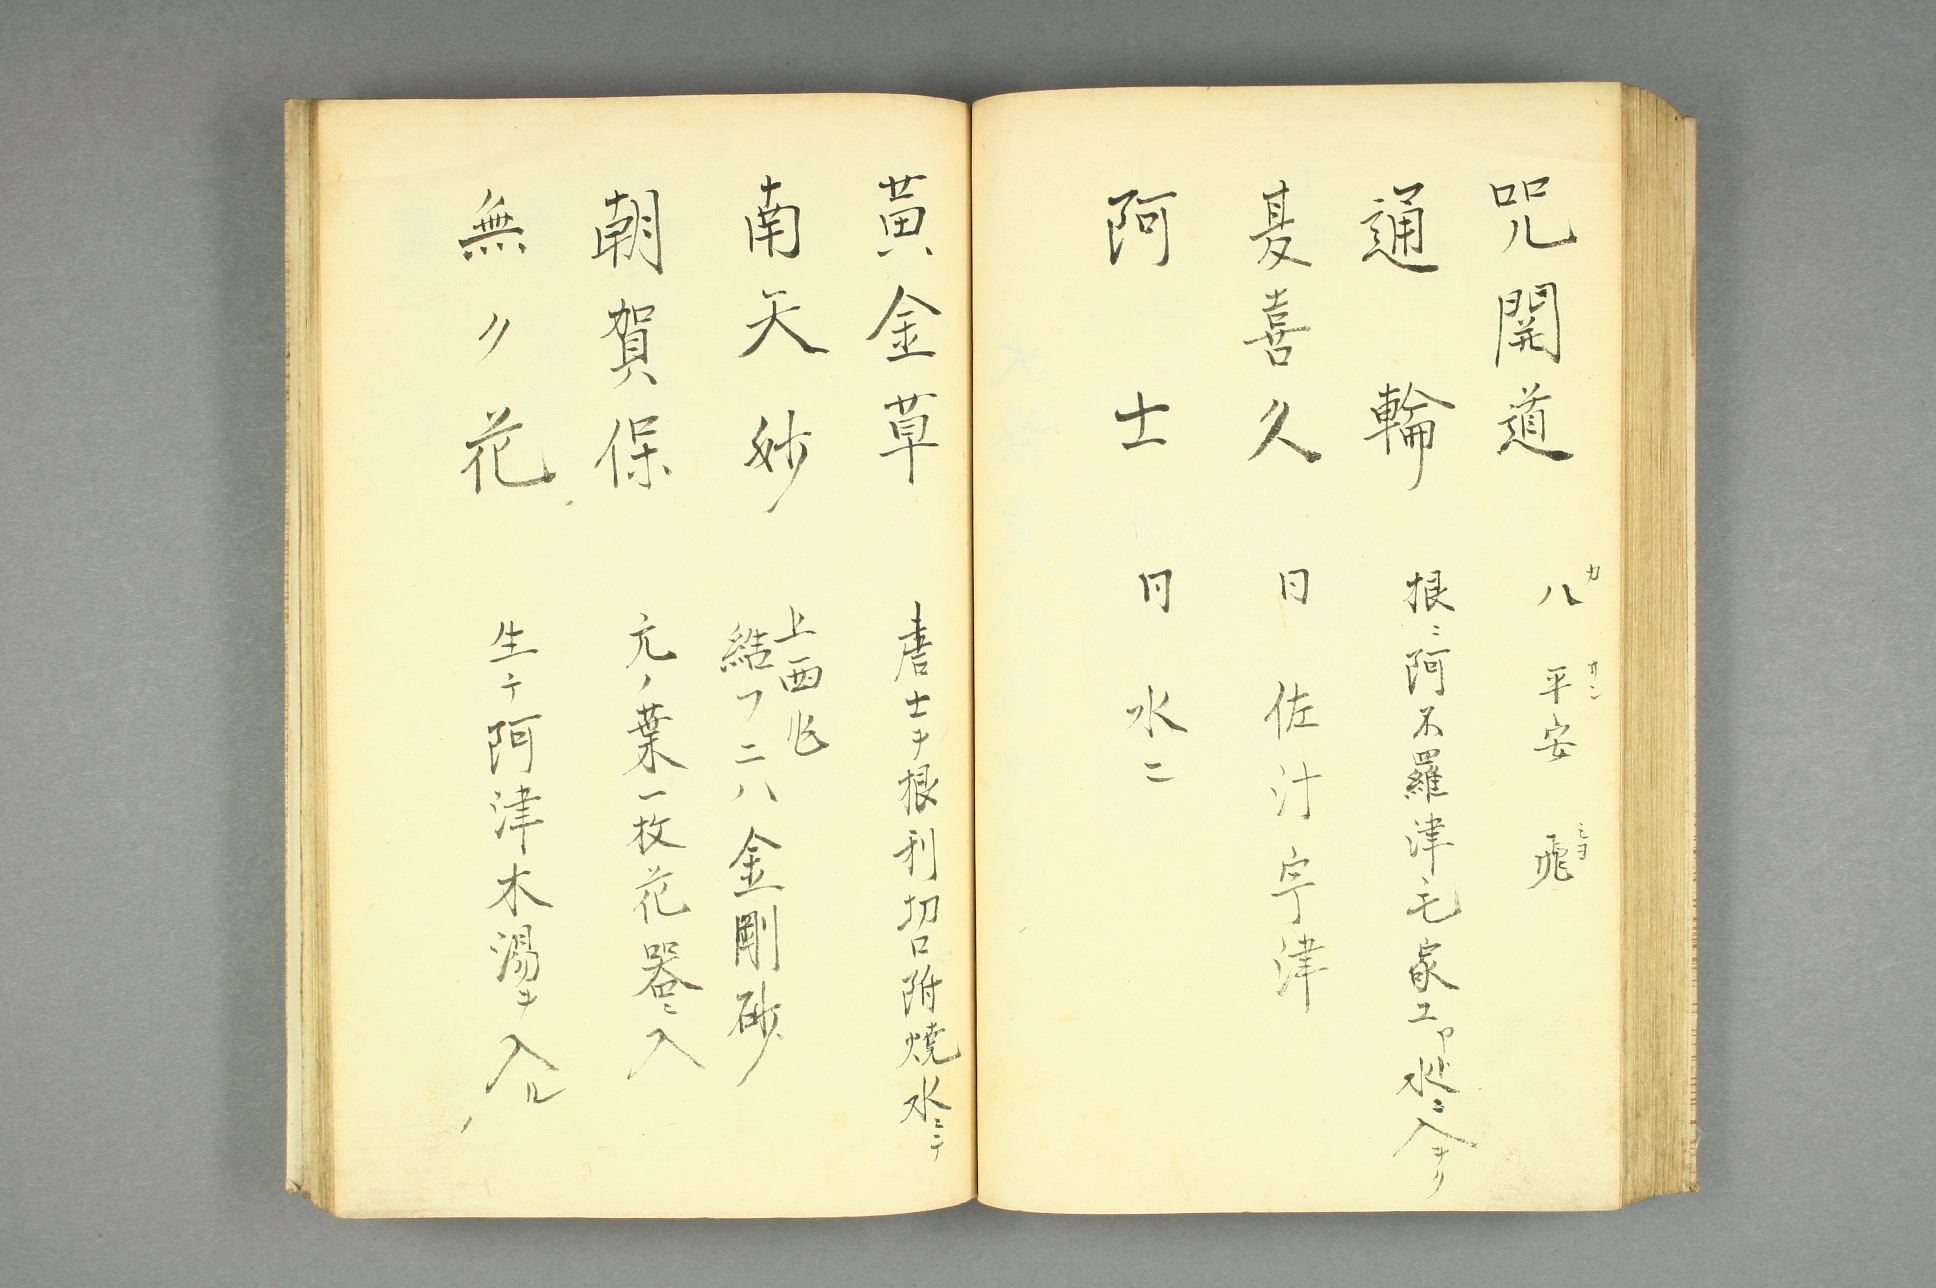 咒開道 八 平安 飛
カ カン ミヨ
通輪 根ニ阿不羅津毛家エ 水ニ入
夏喜久 日 佐汁宇津
阿士 日 水ニ
黄金草 唐士ヲ根利切口附焼水ニテ
南天妙 上西
結フニハ金剛砂
朝賀保 亢ノ葉一枚花器ニ入
無ノ花 生テ阿津木湯ヲ入ル